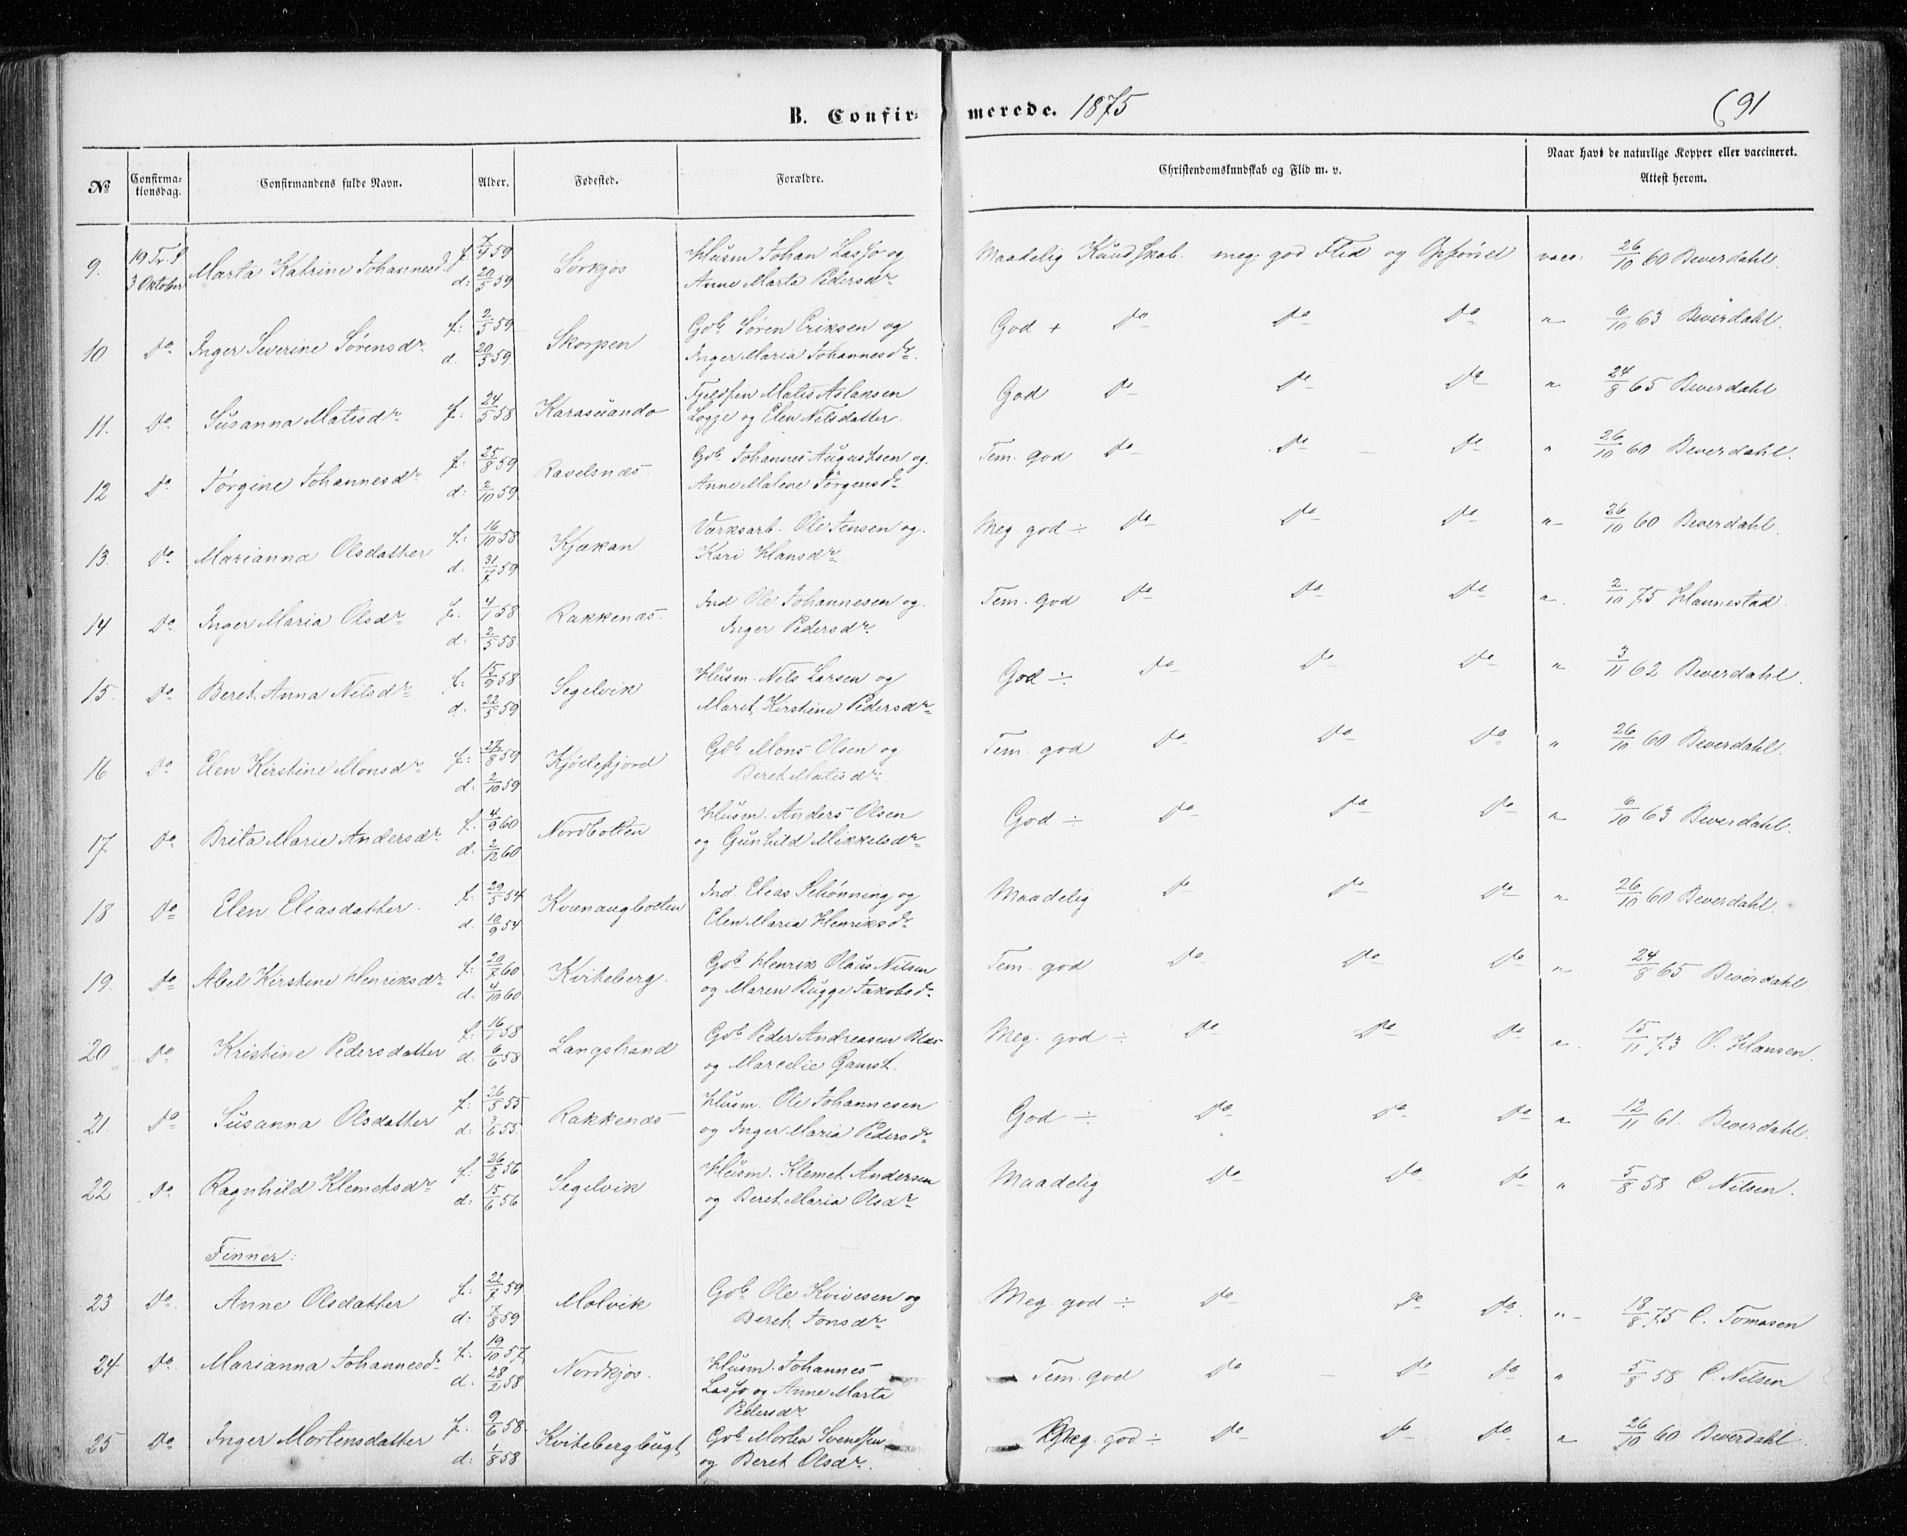 B. Confirmerede. 1875
691
No Confirmationsdag. Confirmandens fulde Navn. Alder. Fødested. Forældre. Christendomskundskab og Flid m. v. Naar havt de naturlige Kopper eller vaccineret. Attest herom.
9. 19 Tr. S. 3 Oktober Marta Katrine Johannesd. f. 7/4 59 d: 20/5 59 Sørkjos Husm Johan Lassjo og Anne Marta Pedersdr Maadelig Kundskab. meg. god Flid og Opførsel vacc: 26/10 60 Beverdahl.
10 Do Inger Severine Sørensdr f: 2/5 59 d. 20/5 59 Skorpen Gbr Søren Eriksen og Inger Maria Johannesdr. God + Do Do Do " 6/10 63 Beverdahl.
11. Do Susanna Matisdr f: 24/5 58 Karasuando Fjeldfin Matis Aslaksen Logje og Elen Nilsdatter. God Do Do Do " 24/8 65 Beverdahl
12 Do Jørgine Johannesdr f: 25/8 59 d. 2/10 59 Ravelsnæs Gbr Johannes Augustsen og Anne Malene Jørgensdr Tem. god Do Do Do " 26/10 60 Beverdahl.
13. Do Marianna Olsdatter f: 16/10 58 d. 31/7 59 Kjækan Værksarb. Ole Jensen og Kari Hansdr Meg. god ÷ Do Do Do " 26/10 60 Beverdahl.
14 Do Inger Maria Olsdr f. 4/1 58 d: 2/5 58 Rakkenæs Ind Ole Johannesen og Inger Pedersdr. Tem. god Do Do Do " 2/10 75 Hannestad.
15. Do Beret Anna Nilsdr f: 15/9 58 d. 22/5 59 Segelvik Husm. Nils Larsen og Maret Kirstine Pedersdr God ÷ Do Do Do " 3/11 62 Beverdahl.
16 Do Elen Kirstine Monsdr f: 27/8 59 d: 2/10 59 Kjøllefjord Gbr Mons Olsen og Beret Matisdr. Tem. god Do Do Do " 26/10 60 Beverdahl.
17 Do Brita Marie Andersdr f. 4/9 60 d. 2/12 60 Nordbotten Husm. Anders Olsen og Gunhild Mikkelsdr God ÷ Do Do Do " 6/10 63 Beverdahl.
18 Do Elen Eliasdatter. f. 29/5 54 d. 10/9 54 Kvænangbotten Ind. Elias Schønning og Elen Maria Henriksdr Maadelig Do Do Do " 26/10 60 Beverdahl.
19. Do Abel Kirstine Henriksdr f: 20/7 60 d. 4/10 60 Kviteberg. Gbr Henrik Olaus Nilsen og Maren Bugge Jakobsdr Tem. god Do Do Do " 24/8 65 Beverdahl.
20 Do Kristine Pedersdatter f: 16/1 58 d. 6/6 58 Langstrand Gbr Peder Andreasen Blæs og Marcelie Gamst. Meg. god ÷ Do Do Do " 15/11 73 O. Hansen.
21. Do Susanna Olsdatter f: 26/3 55 d: 3/6 55 Rakkenæs Husm. Ole Johannesen og Inger Maria Pedersdr God ÷ Do Do Do " 12/11 61. Beverdahl.
22 Do Ragnhild Klemetsdr f: 26/3 56 d: 15/6 56 Segelvik Husm. Klemet Andersen og Beret Maria Olsdr Maadelig Do Do Do " 5/8 58 C. Nilsen.
Finner:
23 Do Anne Olsdatter f: 22/7 59 d: 7/8 59 Molvik Gbr Ole Kvivesen og Beret Jonsdr Meg. god ÷ Do Do Do " 18/8 75 C. Tomasen
24 Do Marianna Johannesdr f. 19/10 57 d. 28/2 58 Nordkjos. Husm. Johannes Lassjo og Anne Marta Pedersdr Tem. god Do Do Do " 5/8 58 C. Nilsen
25 Do Inger Mortensdatter f. 9/6 58. d: 1/8 58 Kvitebergbugt Gbr Morten Svendsen og Beret Olsdr. Meg. god ÷ Do Do Do " 26/10 60 Beverdahl